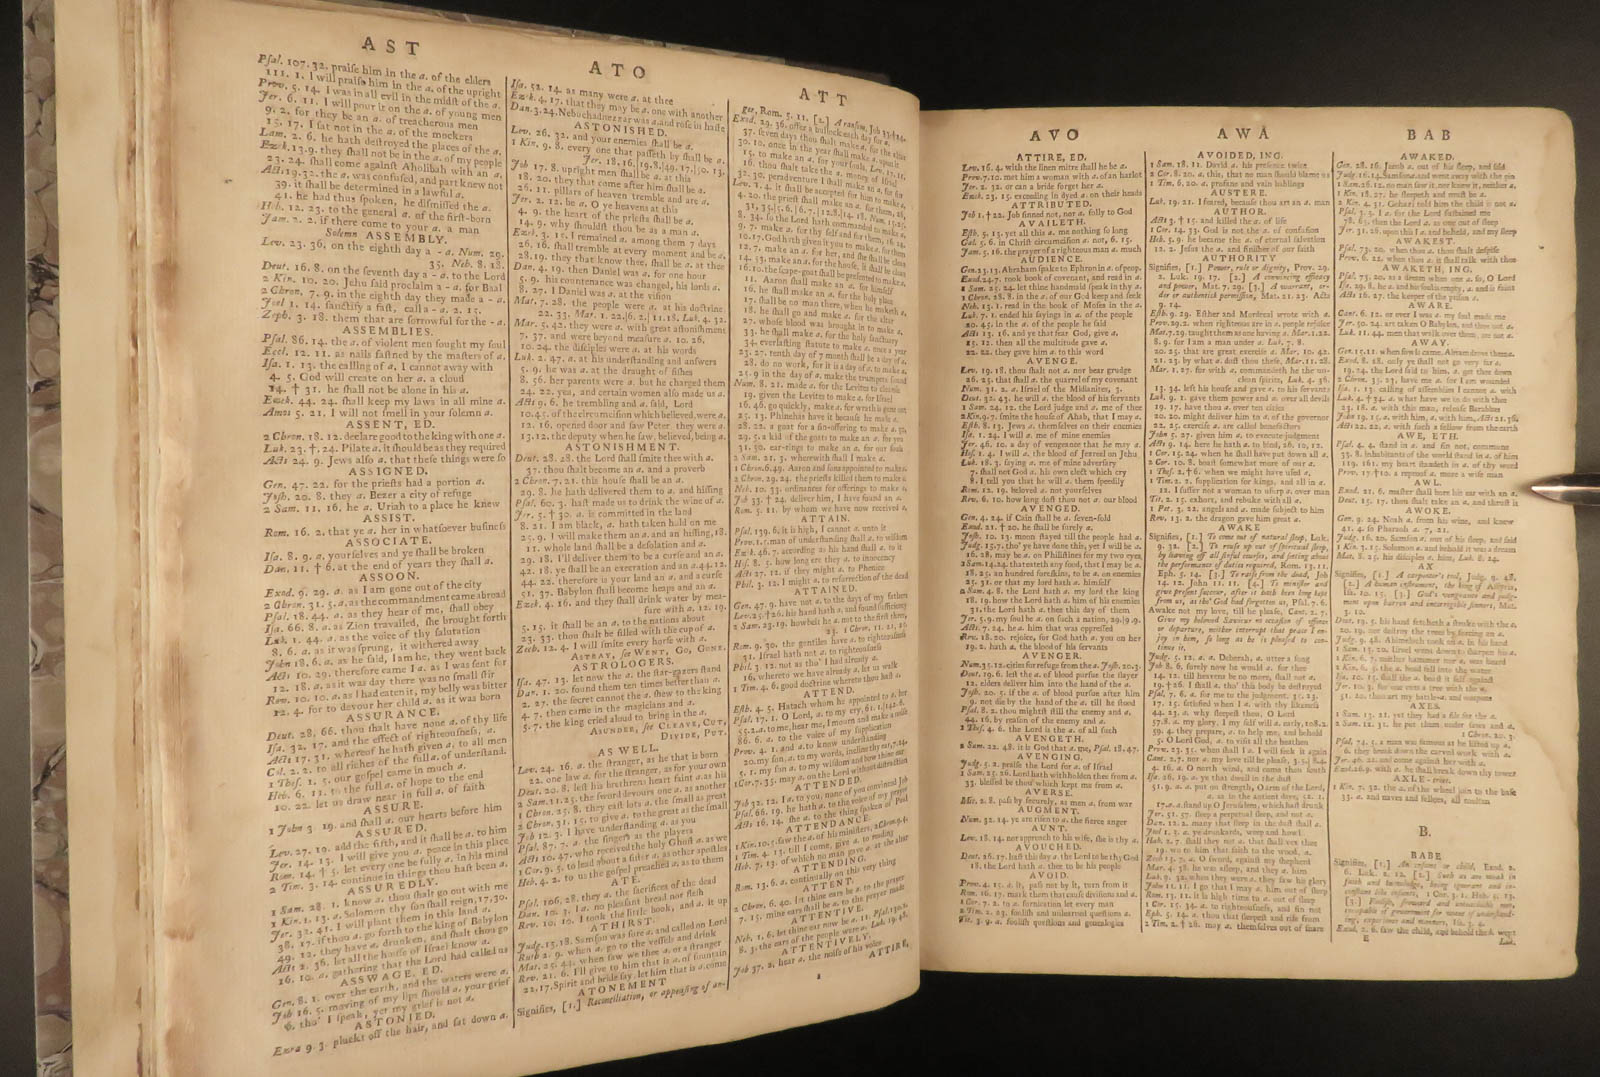 AST
Psal. 107. 32. praiſe him in the a. of the elders
111. 1. I will praiſe him in the a. of the upright
Prov. 5. 14. I was in all evil in the midſt of the a.
Jer. 6. 11. I will pour it on the a. of young men
9. 2. for they be an a. of treacherous men
15. 17. I ſat not in the a. of the mockers
Lam. 2. 6. he hath deſtroyed the places of the a.
Ezek. 13. 9. they ſhall not be in the a. of my people
23. 24. ſhall come againſt Aholibah with an a.
Acts 19. 32. the a. was confuſed, and part knew not
39. it ſhall be determined in a lawful a.
41. he had thus ſpoken, he diſmiſſed the a.
Heb. 12. 23. to the general a. of the firſt-born
Jam. 2. 2. if there come to your a. a man
Solemn ASSEMBLY.
Lev. 23. 36. on the eighth day a - a. Num. 29.
35. Neh. 8. 18.
Deut. 16. 8. on the ſeventh day a - a. to the Lord
2 Kin. 10. 20. Jehu ſaid proclaim a - a. for Baal
2 Chron. 7. 9. in the eighth day they made a - a.
Joel 1. 14. ſanctify a faſt, call a - a. 2. 15.
Zeph. 3. 18. them that are ſorrowful for the - a.
ASSEMBLIES.
Pſal. 86. 14. the a. of violent men ſought my ſoul
Eccl. 12. 11. as nails faſtned by the maſters of a.
Iſa. 1. 13. the calling of a. I cannot away with
4. 5. God will create on her a. a cloud
14. † 31. he ſhall not be alone in his a.
Ezek. 44. 24. ſhall keep my laws in all mine a.
Amos 5. 21. I will not ſmell in your ſolemn a.
ASSENT, ED.
2 Chron. 18. 12. declare good to the king with one a.
Luk. 23. †. 24. Pilate a. it ſhould be as they required
Acts 24. 9. Jews alſo a. that theſe things were ſo
ASSIGNED.
Gen. 47. 22. for the prieſts had a portion a.
Joſh. 20. 8. they a. Bezer a city of refuge
2 Sam. 11. 16. he a. Uriah to a place he knew
ASSIST.
Rom. 16. 2. that ye a. her in whatſoever buſineſs
ASSOCIATE.
Iſa. 8. 9. a. yourſelves and ye ſhall be broken
Dan. 11. † 6. at the end of years they ſhall a.
ASSOON.
Exod. 9. 29. a. as I am gone out of the city
2 Chron. 31. 5. a. as the commandment came abroad
Pſal. 18. 44. a. as they hear of me, ſhall obey
Iſa. 66. 8. a. as Zion travailed, ſhe brought forth
Luk. 1. 44. a. as the voice of thy ſalutation
8. 6. a. as it was ſprung, it withered away
John 18. 6. a. as he ſaid, I am he, they went back
Acts 10. 29. therefore came I a. as I was ſent for
12. 18. a. as it was day there was no ſmall ſtir
Rev. 10. 10. a. as I had eaten it, my belly was bitter
12. 4. for to devour her child a. as it was born
ASSURANCE.
Deut. 28. 66. thou ſhalt have none a. of thy life
Iſa. 32. 17. and the effect of righteouſneſs, a.
Acts 17. 31. whereof he hath given a. to all men
Col. 2. 2. to all riches of the full a. of underſtand.
1 Theſ. 1. 5. our goſpel came in much a.
Heb. 6. 11. to the full a. of hope to the end
10. 22. let us draw near in full a. of faith
ASSURE.
1 John 3. 19. and ſhall a. our hearts before him
ASSURED.
Lev. 27. 19. add the fifth, and it ſhall be a. to him
Jer. 14. 13. I will give you a. peace in this place
Rom. 14. † 5. let every one be fully a. in his mind
2 Tim. 3. 14. continue in things thou haſt been a.
ASSUREDLY.
1 Sam. 28. 1. know a. thou ſhalt go out with me
1 Kin. 1. 13. a. Solomon thy ſon ſhall reign, 17, 30.
Jer. 32. 41. I will plant them in this land a.
38. 17. if thou a. go forth to the king of Babylon
49. 12. they have a. drunken, and ſhalt thou go
Acts 2. 36. let all the houſe of Iſrael know a.
16. 10. a. gathering that the Lord had called us
ASSWAGE, ED.
Gen. 8. 1. over the earth, and the waters were a.
Job 16. 5. moving of my lips ſhould a. your grief
6. tho' I ſpeak, yet my grief is not a.
ASTONIED.
Ezra 9. 3. pluckt off the hair, and ſat down a.
ATO
Iſa. 52. 14. as many were a. at thee
Ezek. 4. 17. that they may be a. one with another
Dan. 3. 24. Nebuchadnezzar was a. and roſe in haſte
ASTONISHED.
Lev. 26. 32. and your enemies ſhall be a.
1 Kin. 9. 8. every one that paſſeth by ſhall be a.
Jer. 18. 16. | 19. 8. | 49. 17. | 50. 13.
Job 17. 8. upright men ſhall be a. at this
18. 20. they that come after him ſhall be a.
26. 11. pillars of heaven tremble and are a.
Jer. 2. 12. be a. O ye heavens at this
4. 9. the heart of the prieſts ſhall be a.
14. 9. why ſhouldſt thou be as a man a.
Ezek. 3. 15. I remained a. among them 7 days
26. 16. ſhall tremble at every moment and be a.
28. 19. they that know thee, ſhall be a. at thee
Dan. 4. 19. then Daniel was a. for one hour
5. 9. his countenance was changed, his lords a.
8. 27. I Daniel was a. at the viſion
Mat. 7. 28. the people were a. at his doctrine
22. 33. Mar. 1. 22. | 6. 2. | 11. 18. Luk. 4. 32.
Mar. 5. 42. they were a. with great aſtoniſhment
7. 37. and were beyond meaſure a. 10. 26.
10. 24. the diſciples were a. at his words
Luk. 2. 47. a. at his underſtanding and anſwers
5. 9. he was a. at the draught of fiſhes
8. 56. her parents were a. but he charged them
24. 22. yea, and certain women alſo made us a.
Acts 9. 6. he trembling and a. ſaid, Lord
10. 45. of the circumciſion which believed, were a.
12. 16. opened door and ſaw Peter they were a.
13. 12. the deputy when he ſaw, believed, being a.
ASTONISHMENT.
Deut. 28. 28. the Lord ſhall ſmite thee with a.
37. thou ſhalt become an a. and a proverb
2 Chron. 7. 21. this houſe ſhall be an a.
29. 8. he hath delivered them to a. and hiſſing
Pſal. 60. 3. haſt made us to drink the wine of a.
Jer. 5. † 30. a. is committed in the land
8. 21. I am black, a. hath taken hold on me
25. 9. I will make them an a. and an hiſſing, 18.
11. whole land ſhall be a deſolation and a.
29. 18. I'll deliver them to be a curſe and an a.
42. 18. ye ſhall be an execration and an a. 44. 12.
44. 22. therefore is your land an a. and a curſe
51. 37. Babylon ſhall become heaps and an a.
Ezek. 4. 16. and they ſhall drink water by mea-
ſure with a. 12. 19.
5. 15. it ſhall be an a. to the nations about
23. 33. thou ſhalt be filled with the cup of a.
Zech. 12. 4. I will ſmite every horſe with a.
ASTRAY, ſee WENT, GO, GONE.
ASTROLOGERS.
Iſa. 47. 13. let now the a. the ſtar-gazers ſtand
Dan. 1. 20. found them ten times better than a.
2. 27. the ſecret cannot the a. ſhew to the king
4. 7. then came in the magicians and a.
5. 7. the king cried aloud to bring in the a.
ASUNDER, ſee CLEAVE, CUT,
DIVIDE, PUT.
AS WELL.
Lev. 24. 16. a. the ſtranger, as he that is born
22. one law a. for the ſtranger, as for your own
Deut. 20. 8. leſt his brethrens heart faint a. as his
2 Sam. 11. 25. the ſword devours one a. as another
1 Chron. 25. 8. they caſt lots a. the ſmall as great
2 Chron. 31. 15. to give a. to the great as the ſmall
Job 12. 3. I have underſtanding a. as you
Pſal. 87. 7. a. the ſingers as the players
Acts 10. 47. who received the holy Ghoſt a. as we
1 Cor. 9. 5. to lead about a ſiſter a. as other apoſtles
Heb. 4. 2. to us the goſpel preached a. as to them
ATE.
Pſal. 106. 28. they a. the ſacrifices of the dead
Dan. 10. 3. I a. no pleaſant bread nor fleſh
Rev. 10. 10. I took the little book, and a. it up
ATHIRST.
Judg. 15. 18. Samſon was ſore a. and called on Lord
Ruth 2. 9. when a. go to the veſſels and drink
Mat. 25. 44. when ſaw we thee a. or a ſtranger
Rev. 21. 6. I'll give to him that is a. of fountain
22. 17. Spirit and bride ſay, let him that is a. come
ATONEMENT
Signifies, [1.] Reconciliation, or appeaſing of an-
ATT
ger, Rom. 5. 11. [2.] A ranſom, Job 33. † 24.
Exod. 29. 36. offer a bullock each day for a.
37. ſeven days thou ſhalt make a. for the altar
30. 10. once in the year ſhall make a. upon it
15. to make an a. for your ſouls, Lev. 17. 11.
16. thou ſhalt take the a. money of Iſrael
32. 30. peradventure I ſhall make an a. for
Lev. 1. 4. it ſhall be accepted for him to make a.
4. 20. the prieſt ſhall make an a. for them, 26,
8. 34. ſo the Lord hath commanded to make a.
9. 7. make a. for thy ſelf and for them, 16. 24.
10. 17. God hath given it you to make a.
12. 7. make an a. for her, and ſhe ſhall be clean
14. 53. make an a. for the houſe, it ſhall be clean
16. 10. the ſcape-goat ſhall be preſented to make a.
11. Aaron ſhall make an a. for himſelf
16. he ſhall make an a. for the holy place
17. ſhall be no man there, when he maketh a.
18. he ſhall go and make a. for the altar
27. whoſe blood was brought in to make a.
33. he ſhall make a. for the holy ſanctuary
34. everlaſting ſtatute to make a. once a year
23. 27. tenth day of 7 month ſhall be a day of a.
28. do no work, for it is a day of a. to make a.
25. 9. in the day of a. make the trumpets ſound
Num. 8. 21. made a. for the Levites to cleanſe
19. given the Levites to make a. for Iſrael
16. 46. go quickly, make a. for wrath is gone out
25. 13. Phinehas have it becauſe he made a.
28. 22. a goat for a ſin-offering to make a. 30.
29. 5. a kid of the goats to make an a. for you
31. 50. ear-rings to make an a. for our ſouls
2 Sam. 21. 3. wherewith ſhall I make a.
1 Chron. 6. 49. Aaron and ſons appointed to make a.
2 Chron. 29. 24. the prieſts killed them to make a.
Neh. 10. 33. ordinances for offerings to make a.
Job 33. † 24. deliver him, I have found an a.
Rom. 5. 11. by whom we have now received a.
ATTAIN.
Pſal. 139. 6. it is high, I cannot a. unto it
Prov. 1. 5. man of underſtanding ſhall a. to wiſdom
Ezek. 46. 7. according as his hand ſhall a. to it
Hoſ. 8. 5. how long ere they a. to innocency
Acts 27. 12. if they might a. to Phenice
Phil. 3. 11. I might a. to reſurrection of the dead
ATTAINED.
Gen. 47. 9. have not a. to the days of my fathers
Lev. 25. † 26. his hand hath a. and found ſufficiency
2 Sam. 23. 19. howbeit he a. not to the firſt three,
23. 1 Chron. 11. 21, 25.
Rom. 9. 30. the gentiles have a. to righteouſneſs
31. Iſrael hath not a. to righteouſneſs
Phil. 3. 12. not as tho' I had already a.
16. whereto we have already a. let us walk
1 Tim. 4. 6. good doctrine whereto thou haſt a.
ATTEND.
Eſth. 4. 5. Hatach whom he appointed to a. her
Pſal. 17. 1. O Lord, a. to my cry, 61. 1. | 142. 6.
55. 2. a. to me, hear me, I mourn and make a noiſe
86. 6. a. to the voice of my ſupplication
Prov. 4. 1. and a. to know underſtanding
20. my ſon, a. to my words, incline thy ear, 7. 24.
5. 1. my ſon a. to my wiſdom and bow thine ear
1 Cor. 7. 35. may a. on the Lord without diſtraction
ATTENDED.
Job 32. 12. I a. to you, none of you convinced Job
Pſal. 66. 19. he hath a. to the voice of my prayer
Acts 16. 14. ſhe a. to the things ſpoken of Paul
ATTENDANCE.
1 Kin. 10. 5. ſaw the a. of his miniſters, 2 Chron. 9. 4.
1 Tim. 4. 13. till I come, give a. to reading
Heb. 7. 13. of which no man gave a. at the altar
ATTENDING.
Rom. 13. 6. a. continually on this very thing
ATTENT.
2 Chron. 6. 40. let thine ears be a. to the prayer
7. 15. mine ears ſhall be a. to the prayer made
ATTENTIVE.
Neh. 1. 6. let thine ear now be a. 11. Pſal. 130. 2.
8. 3. the ears of the people were a. Luk. 19. 48.
ATTENTIVELY.
Job 37. 2. hear a. the noiſe of his voice
ATTIRE,
AVO
ATTIRE, ED.
Lev. 16. 4. with the linen mitre ſhall he be a.
Prov. 7. 10. met him a woman with a. of an harlot
Jer. 2. 32. or can a bride forget her a.
Ezek. 23. 15. exceeding in dyed a. on their heads
ATTRIBUTED.
Job 1. † 22. Job ſinned not, nor a. folly to God
AVAILETH.
Eſth. 5. 13. yet all this a. me nothing ſo long
Gal. 5. 6. in Chriſt circumciſion a. not, 6. 15.
Jam. 5. 16. the prayer of a righteous man a. much
AUDIENCE.
Gen. 23. 13. Abraham ſpake to Ephron in a. of peop.
Exod. 24. 7. took book of covenant, and read in a.
1 Sam. 25. 24. let thine handmaid ſpeak in thy a.
1 Chron. 28. 8. in the a. of our God keep and ſeek
Neh. 13. 1. read in the book of Moſes in the a.
Luk. 7. 1. ended his ſayings in a. of the people
20. 45. in the a. of the people he ſaid
Acts 13. 16. and ye that fear God, give a.
15. 12. then all the multitude gave a.
22. 22. they gave him a. to this word
AVENGE.
Lev. 19. 18. thou ſhalt not a. nor bear grudge
26. 25. that ſhall a. the quarrel of my covenant
Num. 31. 2. a. Iſrael of the Midianites, 3.
Deut. 32. 43. he will a. the blood of his ſervants
1 Sam. 24. 12. the Lord judge and a. me of thee
2 Kin. 9. 7. ſmite the houſe of Ahab, that I may a.
Eſth. 8. 13. Jews a. themſelves on their enemies
Iſa. 1. 24. I will a. me of mine enemies
Jer. 46. 10. a day of vengeance that he may a.
Hoſ. 1. 4. I will a. the blood of Jezreel on Jehu
Luk. 18. 3. ſaying a. me of mine adverſary
7. ſhall not God a. his own elect which cry
8. I tell you that he will a. them ſpeedily
Rom. 12. 19. beloved a. not yourſelves
Rev. 6. 10. how long doſt thou not a. our blood
AVENGED.
Gen. 4. 24. if Cain ſhall be a. ſeven-fold
Exod. 21. † 20. he ſhall be ſurely a.
Joſh. 10. 13. moon ſtayed till the people had a.
Judg. 15. 7. tho' ye have done this, yet I will be a.
16. 28. may be a. on Philiſtines for my two eyes
1 Sam. 14. 24. that eateth any food, that I may be a.
18. 25. an hundred foreſkins, to be a. on enemies
25. 31. or that my lord hath a. himſelf
2 Sam. 4. 8. the Lord hath a. my lord the king
18. 19. how the Lord hath a. him of his enemies
31. the Lord hath a. thee this day of them
Jer. 5. 9. my ſoul be a. on ſuch a nation, 29. | 9. 9.
Acts 7. 24. he a. him that was oppreſſed
Rev. 18. 20. rejoice, for God hath a. you on her
19. 2. hath a. the blood of his ſervants
AVENGER.
Num. 35. 12. cities for refuge from the a. Joſh. 20. 3.
Deut. 19. 6. leſt the a. of blood purſue the ſlayer
12. elders deliver him into the hand of the a.
Joſh. 20. 5. if the a. of blood purſue after him
9. not die by the hand of the a. till he ſtood
Pſal. 8. 2. thou mightſt ſtill the enemy and a.
44. 16. by reaſon of the enemy and a.
1 Theſ. 4. 6. the Lord is the a. of all ſuch
AVENGETH.
2 Sam. 22. 48. it is God that a. me, Pſal. 18. 47.
AVENGING.
Judg. 5. 2. praiſe the Lord for a. of Iſrael
1 Sam. 25. 26. Lord hath withholden thee from a.
33. bleſſed be thou which kept me from a.
AVERSE.
Mic. 2. 8. paſs by ſecurely, as men a. from war
AUGMENT.
Num. 32. 14. ye are riſen to a. the fierce anger
AUNT.
Lev. 18. 14. not approach to his wife, ſhe is thy a.
AVOUCHED.
Deut. 26. 17. haſt this day a. the Lord to be thy God
18. the Lord hath a. thee to be his people
AVOID.
Prov. 4. 15. a. it, paſs not by it, turn from it
Rom. 16. 17. mark them that cauſe diviſions and a.
1 Cor. 7. 2. to a. fornication let every man
2 Tim. 2. 23. fooliſh and unlearned queſtions a.
Tit. 3. 9. a. fooliſh queſtions and genealogies
AWA
AVOIDED, ING.
1 Sam. 18. 11. David a. his preſence twice
2 Cor. 8. 20. a. this, that no man ſhould blame us
1 Tim. 6. 20. a. profane and vain bablings
AUSTERE.
Luk. 19. 21. I feared, becauſe thou art an a. man
AUTHOR.
Acts 3. † 15. and killed the a. of life
1 Cor. 14. 33. God is not the a. of confuſion
Heb. 5. 9. he became the a. of eternal ſalvation
12. 2. Jeſus the a. and finiſher of our faith
AUTHORITY
Signifies, [1.] Power, rule or dignity, Prov. 29.
2. Luk. 19. 17. [2.] A convincing efficacy
and power, Mat. 7. 29. [3.] A warrant, or-
der or authentic permiſſion, Mat. 21. 23. Acts
9. 14.
Eſth. 9. 29. Eſther and Mordecai wrote with a.
Prov. 29. 2. when righteous are in a. people rejoice
Mat. 7. 29. taught them as one having a. Mar. 1. 22.
8. 9. for I am a man under a. Luk. 7. 8.
20. 25. that are great exerciſe a. Mar. 10. 42.
21. 23. by what a. doſt thou theſe, Mar. 11. 28.
Mar. 1. 27. for with a. commandeth he the un-
clean ſpirits, Luk. 4. 36.
13. 34. left his houſe and gave a. to his ſervants
Luk. 9. 1. gave them power and a. over all devils
19. 17. have thou a. over ten cities
20. 20. might deliver him to a. of the governor
22. 25. exerciſe a. are called benefactors
John 5. 27. given him a. to execute judgment
Acts 9. 14. here he hath a. to bind, 26. 10, 12.
1 Cor. 15. 24. when he ſhall have put down all a.
2 Cor. 10. 8. boaſt ſomewhat more of our a.
1 Tim. 2. 2. ſupplication for kings, and all in a.
12. I ſuffer not a woman to uſurp a. over man
Tit. 2. 15. exhort, and rebuke with all a.
1 Pet. 3. 22. angels and a. made ſubject to him
Rev. 13. 2. the dragon gave him great a.
AWAKE
Signifies, [1.] To come out of natural ſleep, Luk.
9. 32. [2.] To rouſe up out of ſpiritual ſleep,
by leaving off all ſinful courſes, and ſetting about
the performance of duties required, Rom. 13. 11.
Eph. 5. 14. [3.] To raiſe from the dead, Job
14. 12. John 11. 11. [4.] To miniſter and
give preſent ſuccour, after it hath been long kept
from us, as tho' God had forgotten us, Pſal. 7. 6.
Awake not my love, till he pleaſe, Cant. 2. 7.
Give my beloved Saviour no occaſion of offence
or departure, neither interrupt that peace I en-
joy in him, ſo long as he is pleaſed to con-
tinue it.
Judg. 5. 12. a. a. Deborah, a. utter a ſong
Job 8. 6. ſurely now he would a. for thee
14. 12. till heavens be no more, ſhall not a.
19. † 26. I ſhall a. tho' this body be deſtroyed
Pſal. 7. 6. a. for me to the judgment. 35. 23.
17. 15. ſatisfied when I a. with thy likeneſs
44. 23. a. why ſleepeſt thou, O Lord
57. 8. a. my glory, I my ſelf will a. early, 108. 2.
59. 4. they prepare, a. to help me, and behold
5. O Lord God, a. to viſit all the heathen
Prov. 23. 35. when ſhall I a. I will ſeek it again
Cant. 2. 7. nor a. my love till he pleaſe, 3. 5. | 8. 4.
4. 16. a. O north wind, and come thou ſouth
Iſa. 26. 19. a. ye that dwell in the duſt
51. 9. a. a. put on ſtrength, O arm of the Lord,
a. as in the antient days, 52. 1.
17. a. a. ſtand up O Jeruſalem, which haſt drunk
Jer. 51. 57. ſleep a perpetual ſleep, and not a.
Dan. 12. 2. many that ſleep in the duſt ſhall a.
Joel 1. 5. a. ye drunkards, weep and howl
Hab. 2. 7. ſhall they not a. that ſhall vex thee
19. wo to him that ſaith to the wood, a.
Zech. 13. 7. a. O ſword, againſt my ſhepherd
Mar. 4. 38. he was aſleep, and they a. him
Luk. 9. 32. when they were a. they ſaw his glory
John 11. 11. I go that I may a. him out of ſleep
Rom. 13. 11. it is high time to a. out of ſleep
1 Cor. 15. 34. a. to righteouſneſs, and ſin not
Eph. 5. 14. a. thou that ſleepeſt and riſe from
2 Tim. 2. † 26. may a. themſelves out of ſnare
BAB
AWAKED.
Gen. 28. 16. Jacob a. out of his ſleep, and ſaid
Judg. 16. 14. Samſon a. and went away with the pin
1 Sam. 26. 12. no man ſaw it, nor knew it, neither a.
1 Kin. 18. 27. he ſleepeth and muſt be a.
2 Kin. 4. 31. Gehazi told him the child is not a.
Pſal. 3. 5. I a. for the Lord ſuſtained me
78. 65. then the Lord a. as one out of ſleep
Jer. 31. 26. upon this I a. and beheld, and my ſleep
AWAKEST.
Pſal. 73. 20. when thou a. thou ſhalt deſpiſe
Prov. 6. 22. when thou a. it ſhall talk with thee
AWAKETH, ING.
Pſal. 73. 20. as a dream when one a. ſo, O Lord
Iſa. 29. 8. he a. and his ſoul is empty, a. and is faint
Acts 16. 27. the keeper of the priſon a.
AWARE.
Cant. 6. 12. or ever I was a. my ſoul made me
Jer. 50. 24. art taken O Babylon, and thou not a.
Luk. 11. 44. men that walk over them, are not a.
AWAY.
Gen. 15. 11. when fowls came, Abram drove them a.
Exod. 8. 28. only ye ſhall not go very far a.
19. 24. the Lord ſaid to him, a. get thee down
2 Chron. 35. 23. have me a. for I am wounded
Iſa. 1. 13. calling of aſſemblies I cannot a. with
Luk. 4. † 34. a. what have we to do with thee
23. 18. a. with this man, releaſe Barabbas
John 19. 15. a. with him, a. with him, Acts 21. 36.
Acts 22. 22. a. with ſuch a fellow from the earth
AWE, ETH.
Pſal. 4. 4. ſtand in a. and ſin not, commune
33. 8. inhabitants of the world ſtand in a. of him
119. 161. my heart ſtandeth in a. of thy word
Prov. 17. † 10. a reproof a. more a wiſe man
AWL.
Exod. 21. 6. maſter ſhall bore his ear with an a.
Deut. 15. 17. thou ſhalt take an a. and thruſt it
AWOKE.
Gen. 9. 24. Noah a. from his wine, and knew
41. 4. ſo Pharaoh a. 7, 21.
Judg. 16. 20. Samſon a. out of his ſleep, and ſaid
1 Kin. 3. 15. Solomon a. and behold it was a dream
Mat. 8. 25. his diſciples a. him, Luk. 8. 24.
AX
Signifies, [1.] A carpenter's tool, Judg. 9. 48.
[2.] A human inſtrument, the king of Aſſyria,
Iſa. 10. 15. [3.] God's vengeance and judg-
ment upon barren and incorrigible ſinners, Mat.
3. 10.
Deut. 19. 5. his hand fetcheth a ſtroke with the a.
20. 19. nor deſtroy the trees by forcing an a.
Judg. 9. 48. Abimelech took an a. in his hand
1 Sam. 13. 20. Iſrael went down to ſharpen his a.
1 Kin. 6. 7. neither hammer nor a. was heard
2 Kin. 6. 5. the a. head fell into the water
Iſa. 10. 15. ſhall the a. boaſt it ſelf againſt
Jer. 10. 3. for one cuts a tree with the a.
51. 20. thou art my battle-a. and weapons
AXES.
1 Sam. 13. 21. yet they had a file for the a.
2 Sam. 12. 31. he put them under ſaws and a.
1 Chron. 20. 3.
Pſal. 74. 5. a man was famous as he lifted up a.
6. they break down the carved work with a.
Jer. 46. 22. and come againſt her with a.
Ezek. 26. 9. with a. he ſhall break down thy towers
AXLE-trees.
1 Kin. 7. 32. the a. of the wheel join to the baſe
33. a. and naves and felloes, all molten
B.
BABE
Signifies, [1.] An infant or child, Exod. 2.
6. Luk. 2. 12. [2.] Such as are weak in
faith and knowledge, being ignorant and in-
conſtant like infants, 1 Cor. 3. 1. Heb. 5. 13.
[3.] Fooliſh, froward and unteachable men,
uncapable of government for want of underſtand-
ing, experience and manners, Iſa. 3. 4.
Exod. 2. 6. ſaw the child, and behold the a. wept
E
Luk.